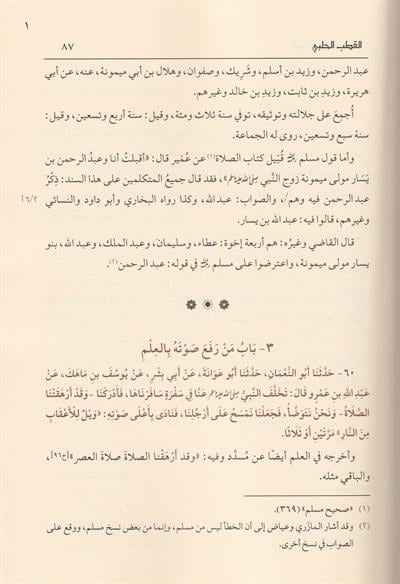 ١
القطب الحلبي
٨٧
عبد الرحمن، وزيد بن أسلم، وشَرِيك، وصفوان، وهلال بن أبي ميمونة، عنه، عن أبي
هريرة، وزيدِ بن ثابت، وزيدِ بن خالد وغيرهم.
أُجمِعَ على جلالته وتوثيقه، توفي سنة ثلاث ومئة، وقيل: سنة أربع وتسعين، وقيل:
سنة سبع وتسعين، روى له الجماعة.
وأما قول مسلم ﵀ قُبَيل كتاب الصلاة(١) عن عُمَير قال: «أقبلتُ أنا وعبدُ الرحمن بن
يَسَار مولى ميمونة زوج النَّبي ﷺ»، فقد قال جميعُ المتكلمين على هذا السند: ذِكْرُ
عبد الرحمن فيه وهم/، والصواب: عبدالله، وكذا رواه البخاري وأبو داود والنسائي
٦/٢أ
وغيرهم، قالوا فيه: عبدالله بن يسار.
قال القاضي وغيرُه: هم أربعة إخوة: عطاء، وسليمان، وعبد الملك، وعبدالله، بنو
يسار مولى ميمونة، واعترضوا على مسلم ﵀ في قوله: عبد الرحمن(٢).
٣- بَابُ مَنْ رَفَعَ صَوْتَهُ بِالعِلْمِ
٦٠- حَدَّثَنَا أَبُو النُّعْمَانِ، حَدَّثَنَا أَبُو عَوَانَةَ، عَنْ أَبِي بِشْرٍ، عَنْ يُوسُفَ بنِ مَاهَكَ، عَنْ
عَبْدِ اللهِ بنِ عَمْرٍو قَالَ: تَخَلَّفَ النَّبِيُّ ﷺ عَنَّا فِي سَفْرَةٍ سَافَرْنَاهَا، فَأَدْرَكَنَا - وَقَدْ أَرْهَقَتْنَا
الصَّلَاةُ - وَنَحْنُ نَتَوَضَّأُ، فَجَعَلْنَا نَمْسَحُ عَلَى أَرْجُلِنَا، فَنَادَى بِأَعْلَى صَوْتِهِ: «وَيْلٌ لِلأَعْقَابِ
مِنَ النَّارِ» مَرَّتَيْنِ أَوْ ثَلَاثًا.
وأخرجه في العلم أيضًا عن مُسدَّد وفيه: «وقد أَرْهَقْنا الصلاةَ صلاةَ العصر»[ح٩٦]،
والباقي مثله.
(١) «صحيح مسلم» (٣٦٩).
(٢) وقد أشار المازَري وعياض إلى أن الخطأ ليس من مسلم، وإنما من بعض نسخ مسلم، ووقع على
الصواب في نسخ أخرى.